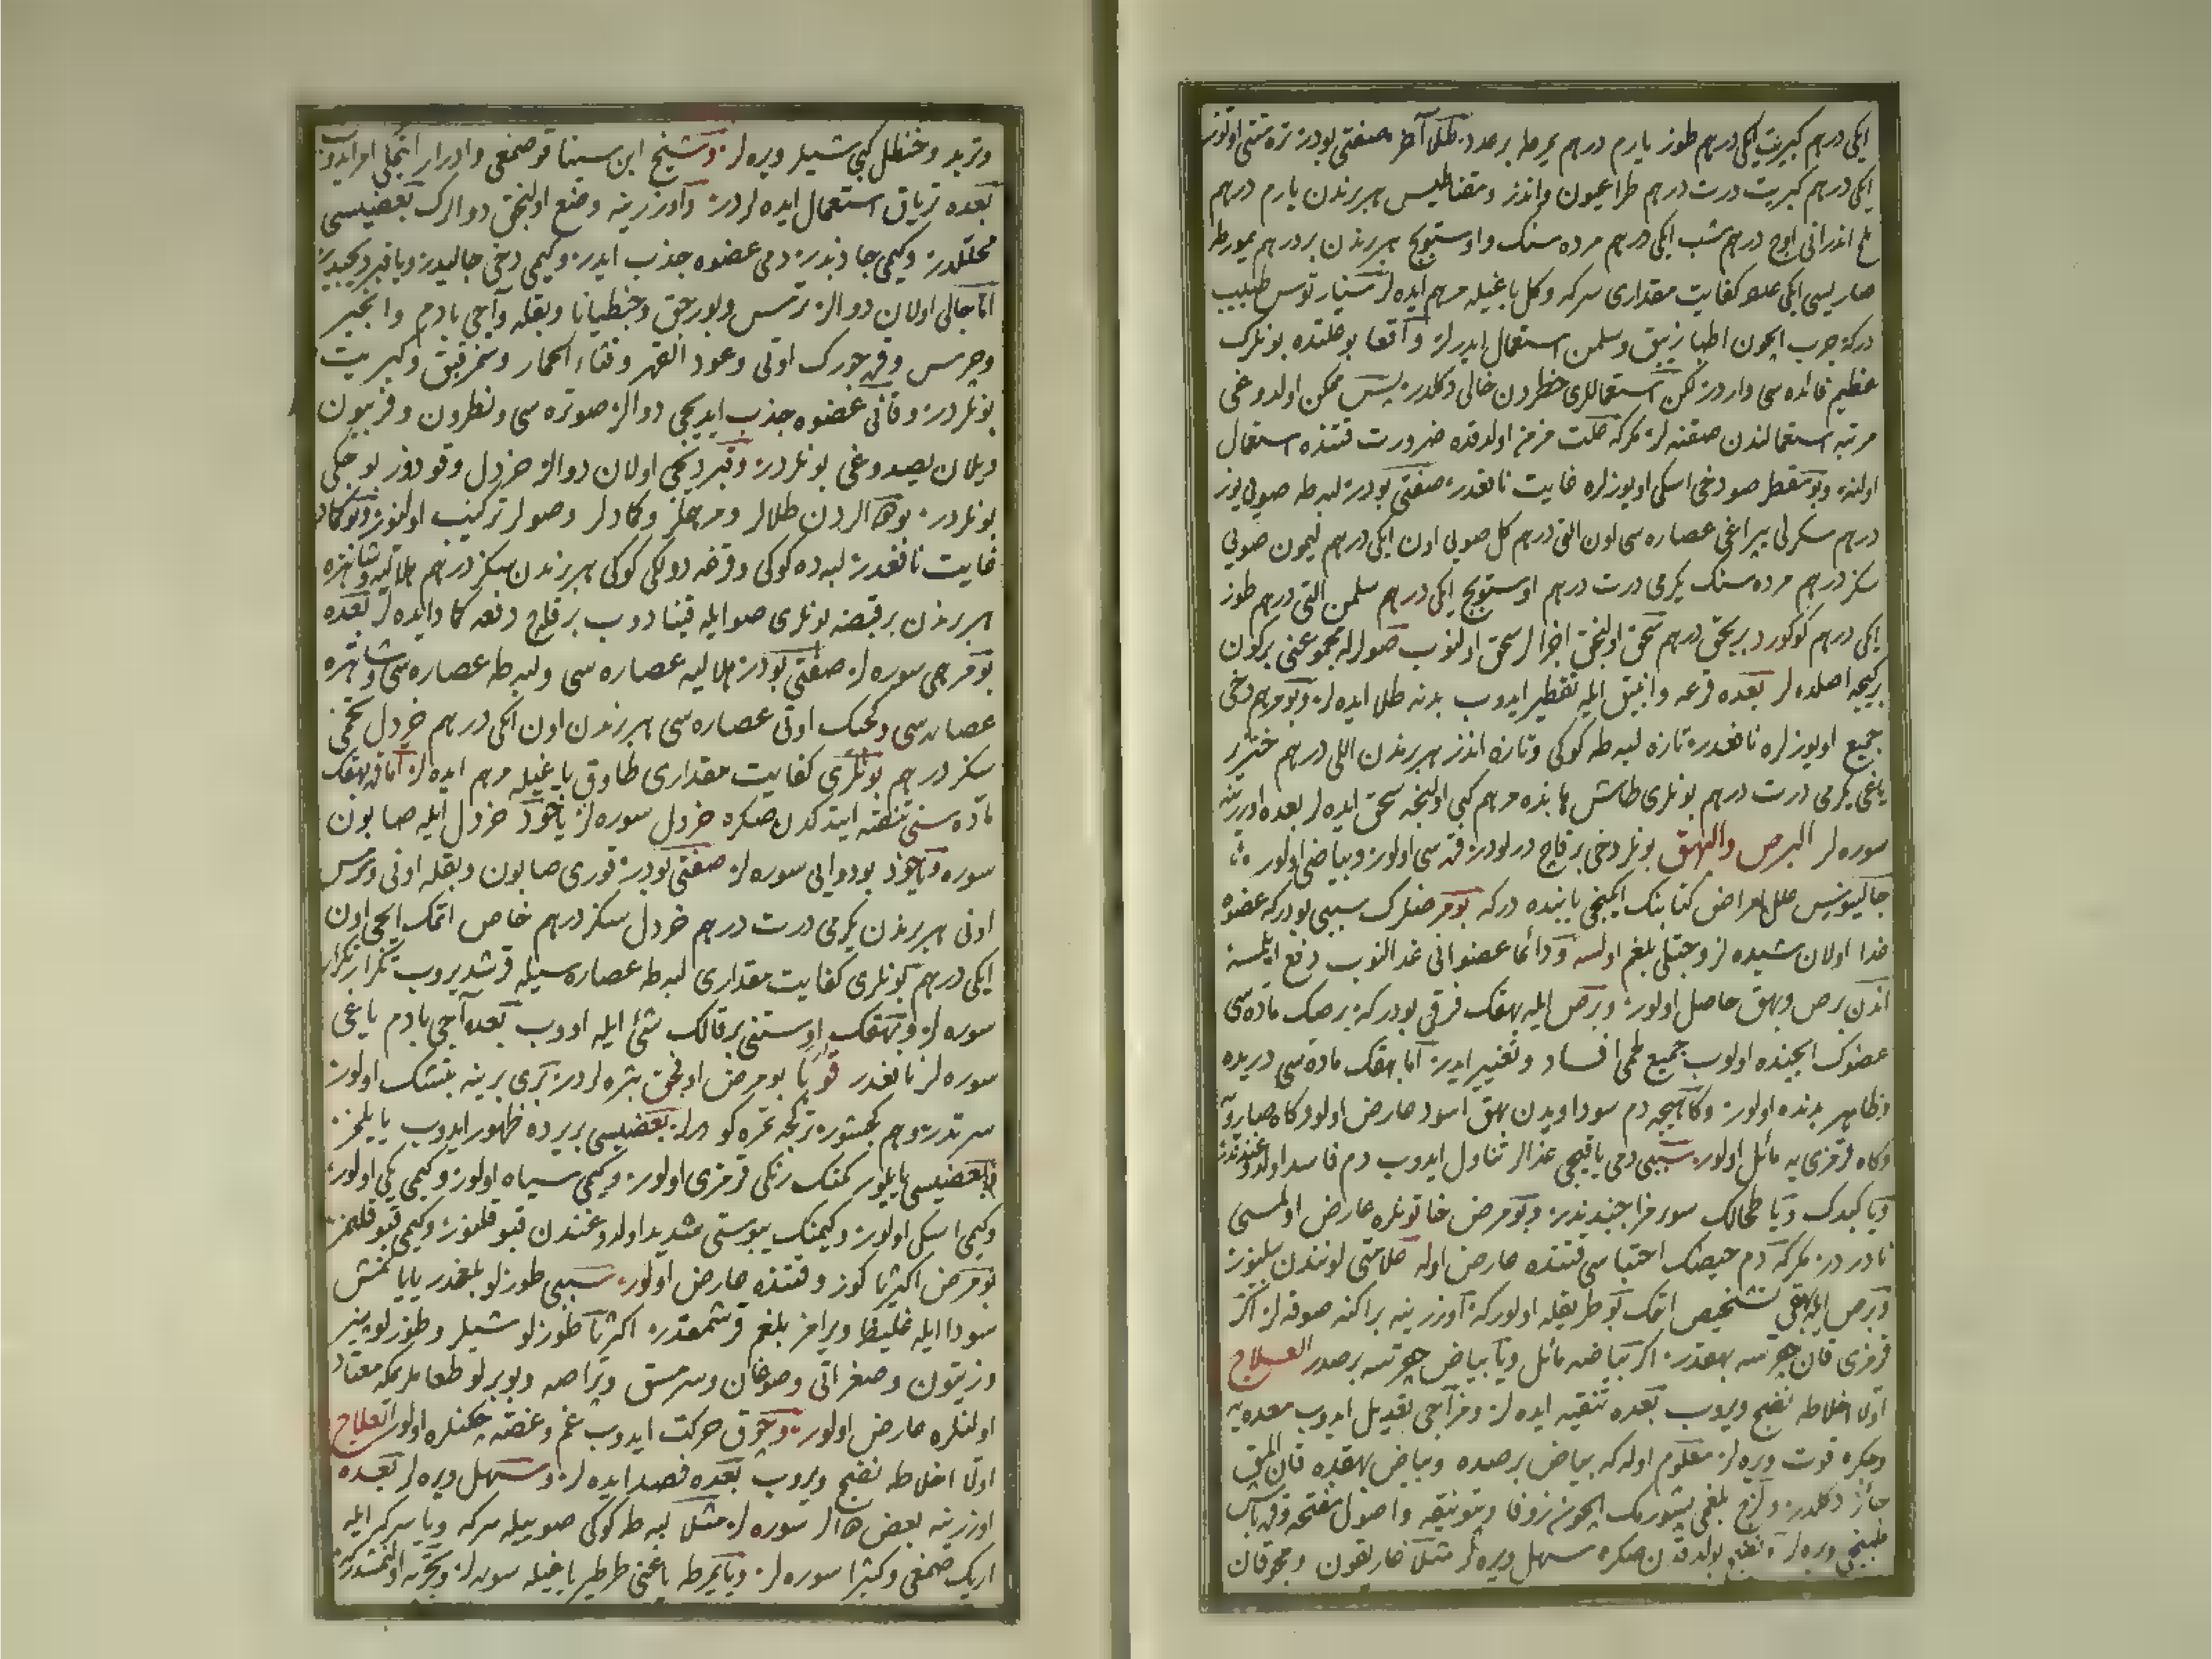 ایکی درهم کبریت ایکی درهم طوز یارم درهم یمرطه برعدد طلاء آخر صفتی بودر تره تخمی اوتوز
ایکی درهم کبریت درت درهم طراغیون واندز ومقناطیس هر برندن یارم درهم
ملح اندرانی اوچ درهم شب ایکی درهم مرده سنک واوستوبج هر برندن بر درهم یمورطه
صاریسی ایکی عدد کفایت مقداری سرکه وکل یاغیله مرهم ایده لر طبیب
درکه جرب ایچون اطبا زیبق وسلمن استعمال ایدرلر واقعا بو علتده بونلرک
عظیم فائده سی واردر لکن استعماللری خطردن خالی دکلدر پس ممکن اولدوغی
مرتبه استعمالندن صقنه لر مکرکه علت مزمن اولدقده ضرورت وقتنده استعمال
اولنه وبو مقطر صو دخی اسکی اویوزلره غایت نافعدر صفتی بودر لبه طه صویی یوز
درهم سکرلی یپراغی عصاره سی اون التی درهم کل صویی اون ایکی درهم لیمون صویی
سکز درهم مرده سنک یکرمی درت درهم اوستوبج ایکی درهم سلمن التی درهم طوز
ایکی درهم کوکورد بر بچق درهم سحق اولنجق اجزالر سحق اولنوب صولرله مجموعنی برکون
برکیجه اصلده لر بعده قرعه وانبیق ایله تقطیر ایدوب بدنه طلا ایده لر وبو مرهم دخی
جمیع اویوزلره نافعدر تازه لبه طه کوکی وتازه اندز هر برندن اللی درهم خنزیر
یاغی یکرمی درت درهم بونلری طاش هاونده مرهم کبی اولنجه سحق ایده لر بعده اوزرینه
سوره لر البرص والبهق بونلر دخی برقاچ درلودر قره سی اولور وبیاضی اولور
جالینوس علل امراض کتابنک ایکنجی بابنده درکه بو مرضلرک سببی بودرکه عضوه
غدا اولان شیده لزوجتلی بلغم اولسه ودائما عضو انی غدالنوب دفع ایلمسه
اندن برص وبهق حاصل اولور وبرص ایله بهقک فرقی بودرکه برصک ماده سی
عضوک ایچنده اولوب جمیع لحمی افساد وتغییر ایدر اما بهقک ماده سی دریده
وظاهر بدنده اولور وکاهیجه دم سوداویدن بهق اسود عارض اولور کاه صاریه
وکاه قرمزی یه مائل اولور سببی دمی یاقیجی غدالر تناول ایدوب دم فاسد اولدوغندندر
ویا کبدک ویا طحالک سوء مزاجندندر وبو مرض خاتونلره عارض اولمسی
نادردر مکرکه دم حیضک احتباسی وقتنده عارض اوله علامتی لونندن بلنور
وبرص ایله بهقی تشخیص اتمک بو طریقله اولورکه اوزرینه براکنه صوقه لر اکر
قرمزی قان چیقرسه بهقدر اکر بیاضه مائل ویا بیاض چیقرسه برصدر العلاج
اولا اخلاطه نضج ویروب بعده تنقیه ایده لر ومزاجی تعدیل ایدوب معده یه
وجکره قوت ویره لر معلوم اوله که بیاض برصده وبیاض بهقده قان المق
جائز دکلدر ولزج بلغمی پشورمک ایچون زوفا واصول مفتحه
طبیخی ویره لر نضج بولدقدن صکره مسهل ویره لر مثلا غاریقون ومحموقان
وتربد وحنظل کبی شیلر ویره لر وشیخ ابن سینا قوصمغی وادرار اتمکی امر ایدوب
بعده تریاق استعمال ایده لر در واوزرینه وضع اولنجق دوالرک بعضیسی
محللدر وکیمی جاذبدر دمی عضوه جذب ایدر وکیمی دخی جالیدر ویا قبردیجیدر
اما جالی اولان دوالر ترمس وبورچق وجنطیانا وبقله وآجی بادم وانجیر
وقره چورک اوتی وعود القهر وقثاء الحمار وخربق وکبریت
بونلردر وقانی عضوه جذب ایدیجی دوالر صوتره سی ونطرون وفربیون
ویلان یصدوغی بونلردر وقبردیجی اولان دوالر خردل وقودوز بوجکی
بونلردر بو دوالردن طلالر ومرهملر وکمادلر وصولر ترکیب اولنور وبو کماد
غایت نافعدر لبه ده کوکی وقرغه دولکی کوکی هر برندن سکز درهم هلالیه وشاهتره
هر برندن بر قبضه بونلری صو ایله قینادوب برقاچ دفعه کماد ایده لر بعده
بو مرهمی سوره لر صفتی بودر هلالیه عصاره سی ولبه طه عصاره سی وشاهتره
عصاره سی وکجک اوتی عصاره سی هر برندن اون ایکی درهم خردل تخمی
سکز درهم بونلری کفایت مقداری طاوق یاغیله مرهم ایده لر اما قره بهقک
ماده سنی تنقیه ایتدکدن صکره خردل سوره لر یاخود خردل ایله صابون
سوره ویاخود بو دوایی سوره لر صفتی بودر قوری صابون وبقله اونی وترمس
اونی هر برندن یکرمی درت درهم خردل سکز درهم خاص اتمک ایچی اون
ایکی درهم بونلری کفایت مقداری لبه طه عصاره سیله قرشدیروب تکرار تکرار
سوره لر وبهقک اوستنی بر قالک شئ ایله اووب بعده آجی بادم یاغی
سوره لر نافعدر قوبا بو مرض اوفجق بثره لردر بری برینه بتشک اولور
سرتدر وهم کجشور بعضیسی بریرده ظهور ایدوب یایلمز
وبعضیسی یایلور کمنک رنکی قرمزی اولور وکیمی سیاه اولور وکیمی یکی اولور
وکیمی اسکی اولور وکیمنک یبوستی شدید اولدوغندن قپوقلنور وکیمی قپوقلنمز
بو مرض اکثریا کوز وقتنده عارض اولور سببی طوزلو بلغمدر یا یانمش
سودا ایله غلیظ ویرامز بلغم قرشمقدر اکثریا طوزلو شیلر وطوزلو پینیر
وزیتون وصغر اتی وصوغان وسرمسق وپراصه وبوبرلو طعاملر یمکه معتاد
اولنلره عارض اولور وچوق حرکت ایدوب غم وغصه چکنلره اولور العلاج
اولا اخلاطه نضج ویروب بعده فصد ایده لر ومسهل ویره لر بعده
اوزرینه بعض دوالر سوره لر مثلا لبه طه کوکی صوییله سرکه ویا سرکه ایله
اریک صمغی وکثیرا سوره لر ویا یمرطه یاغنی طرطیر یاغیله سوره لر وتجربه اولنمشدرکه